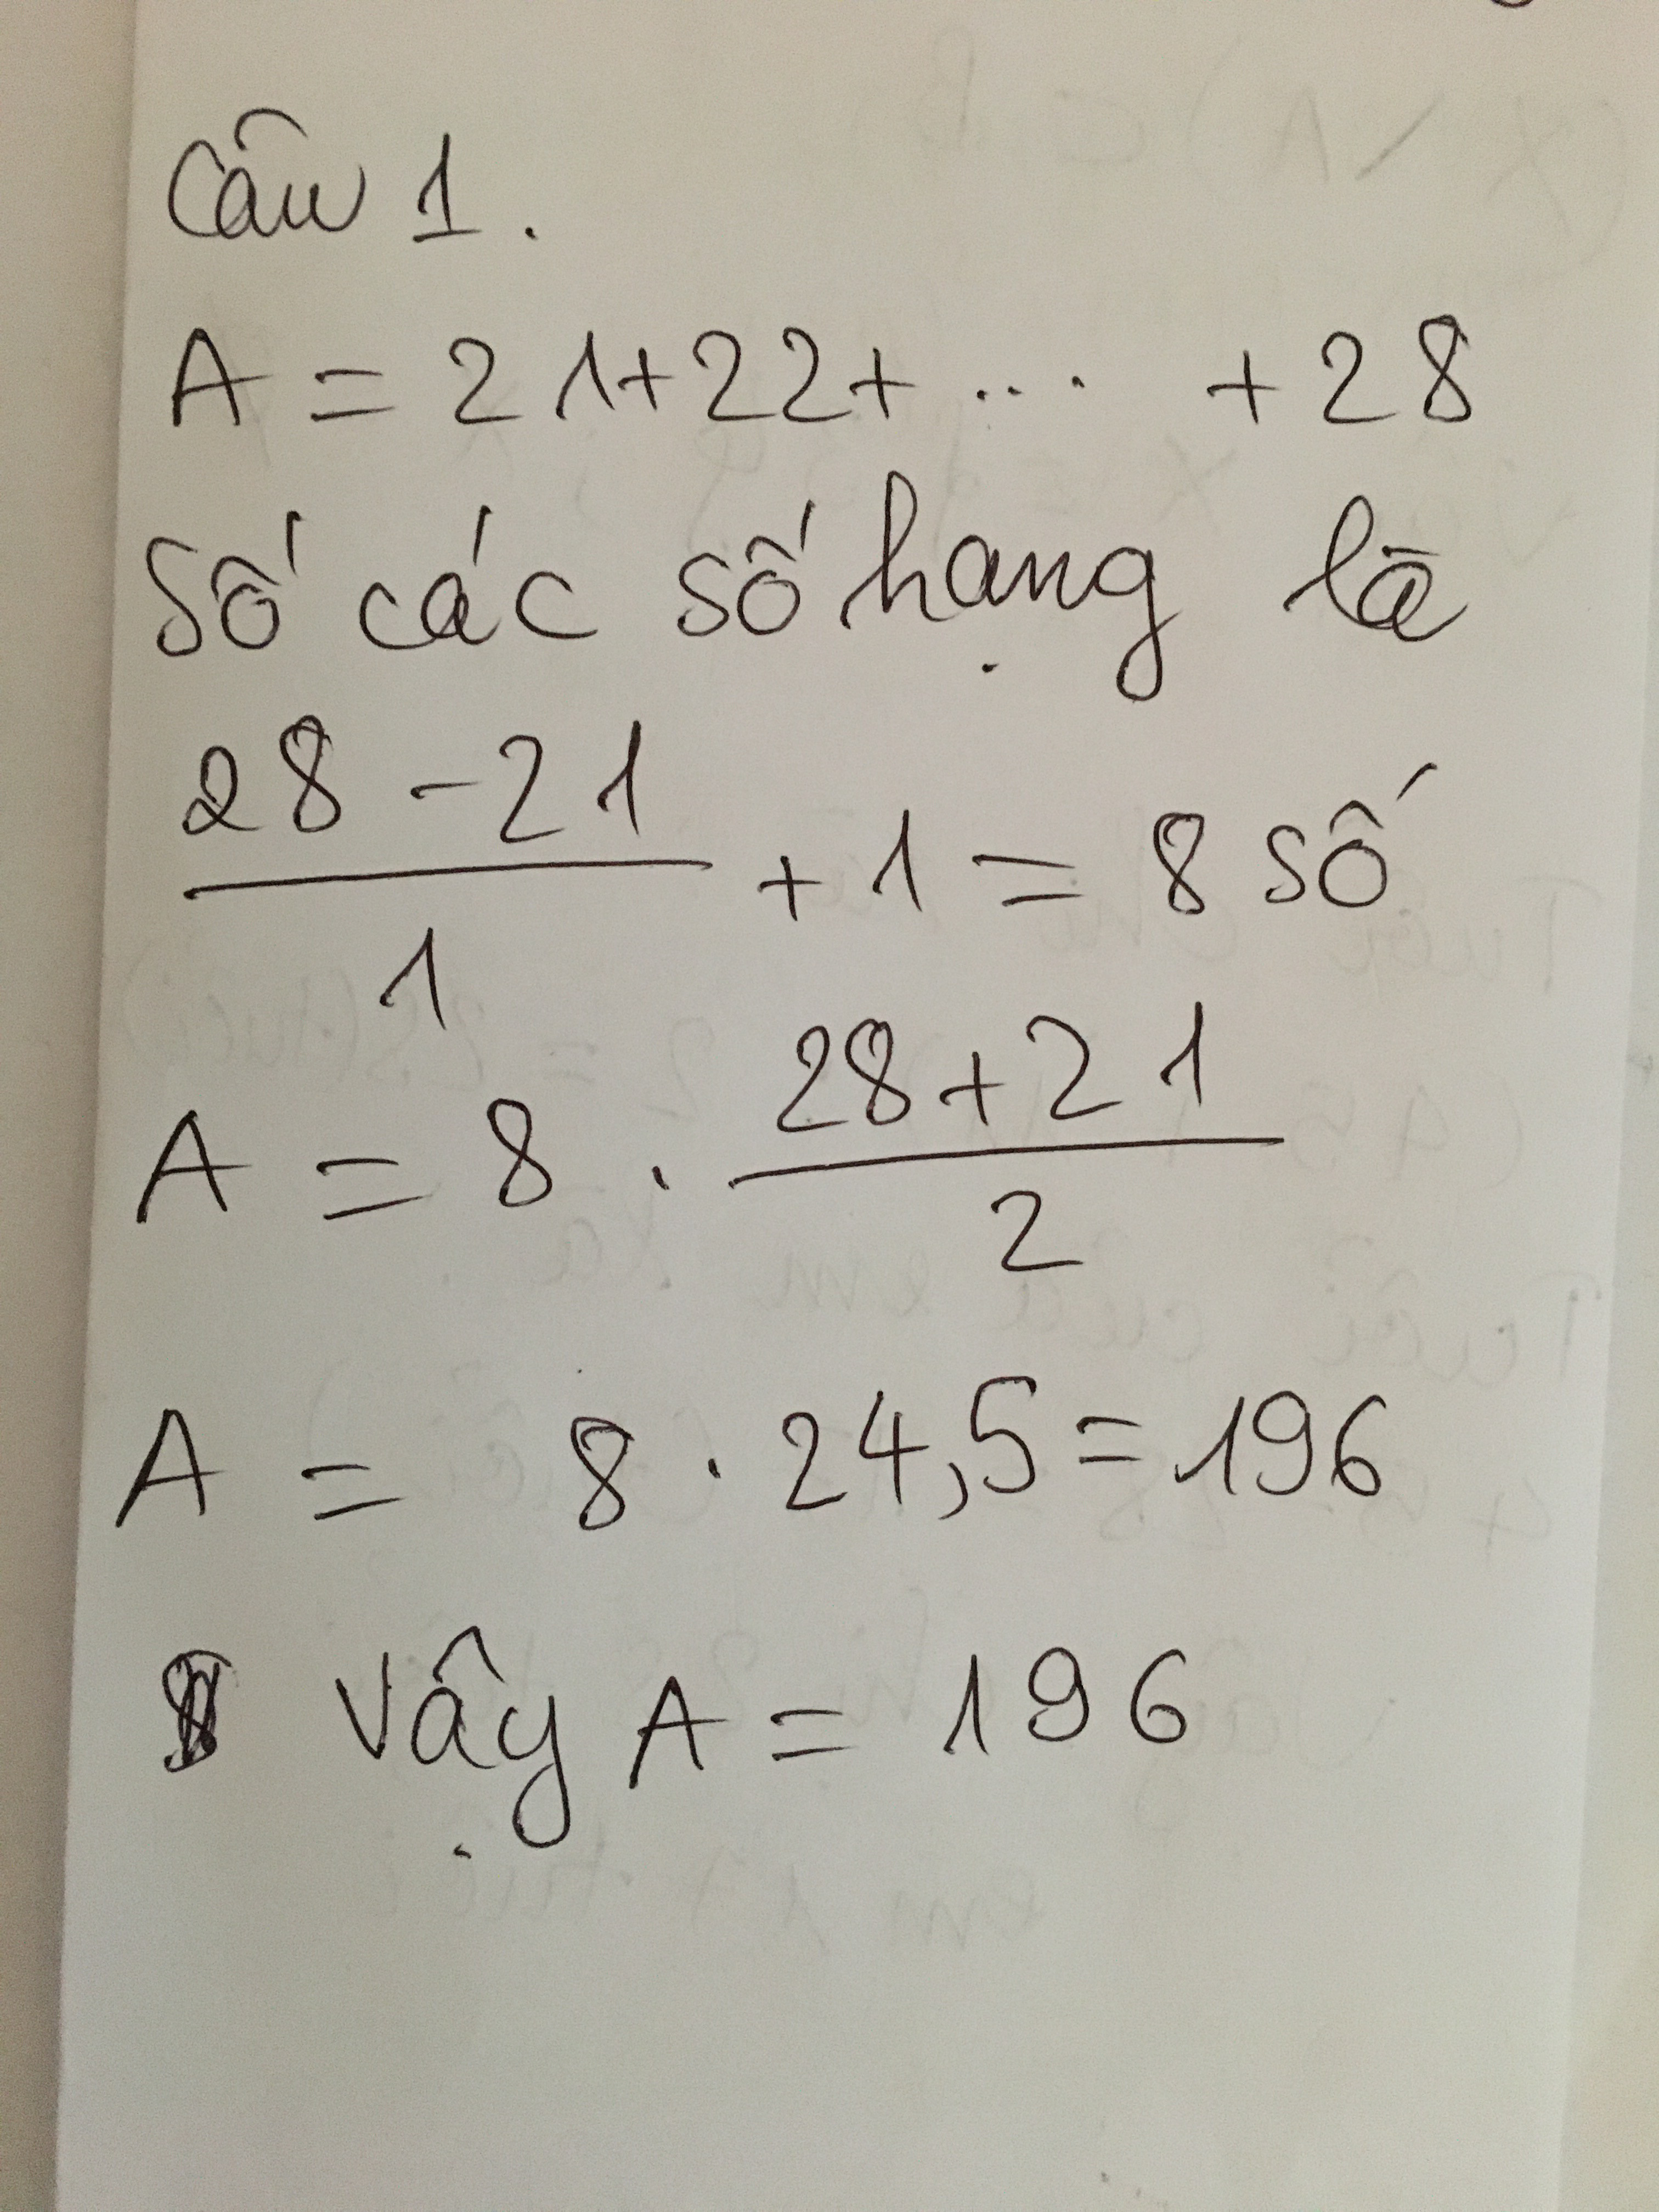 Câu 1.
A = 21+22+ ... +28
Số các số hạng là
28 - 21
+ 1 = 8 số
1
28+21
A = 8 .
2
A = 8 . 24,5 = 196
Vậy A = 196